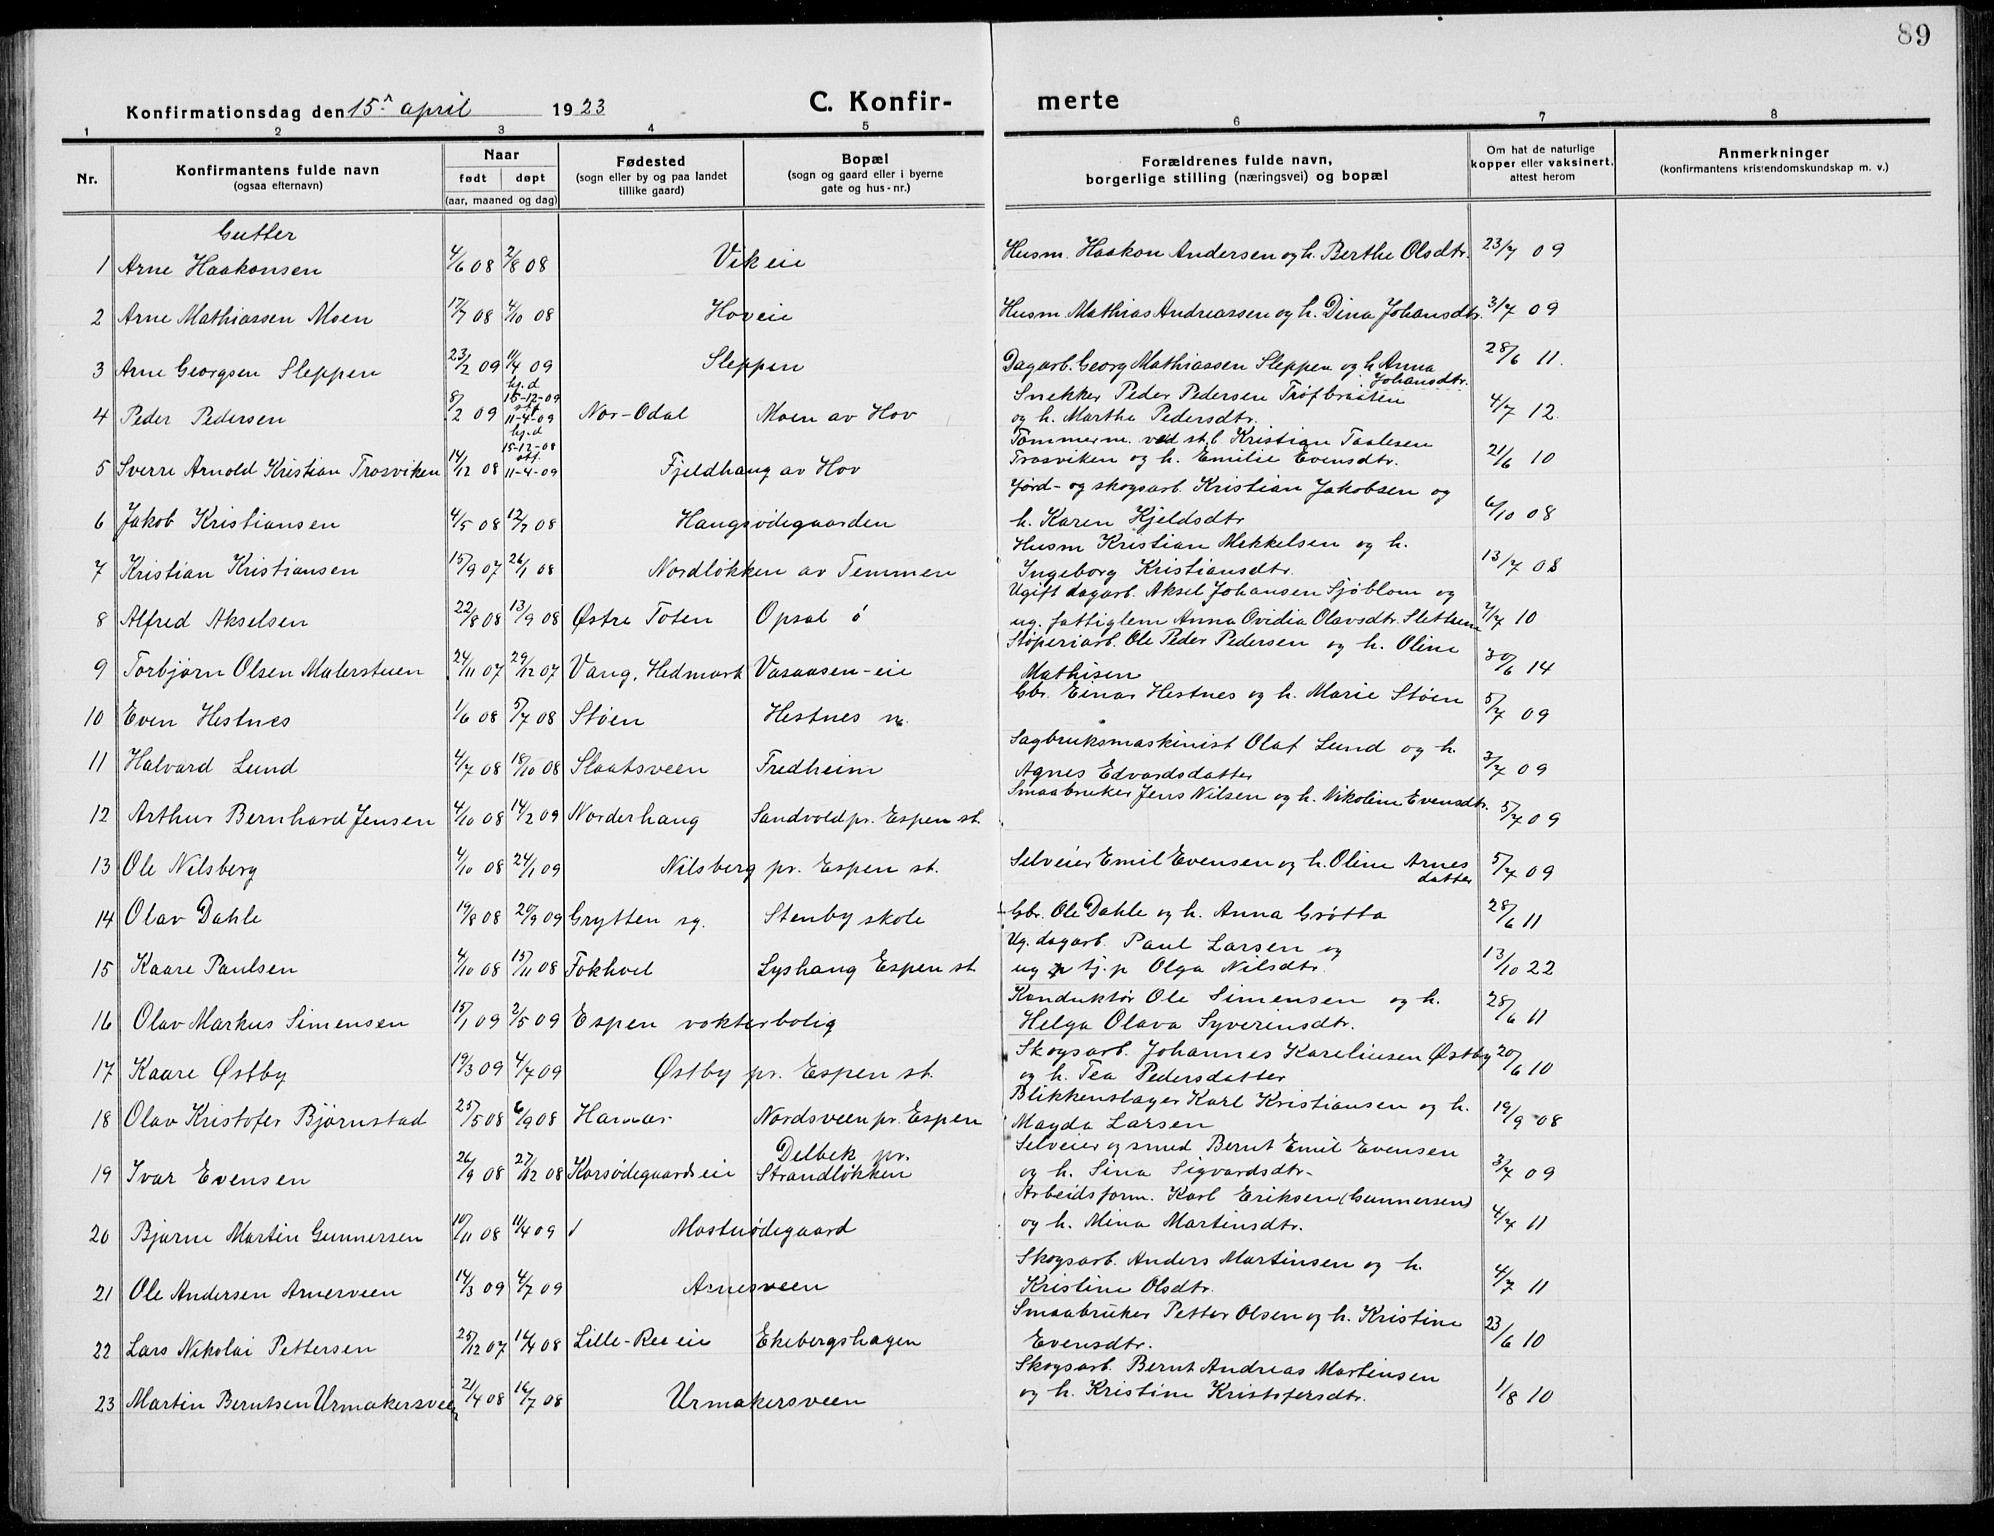 89
Konfirmationsdag den 15. april 1923
C. Konfir-
merte
1 2 3 4 5 6 7 8
Nr.
Konfirmantens fulde navn
(ogsaa efternavn)
Naar
født døpt
(aar, maaned og dag)
Fødested
(sogn eller by og paa landet
tillike gaard)
Bopæl
(sogn og gaard eller i byerne
gate og hus-nr.)
Forældrenes fulde navn,
borgerlige stilling (næringsvei) og bopæl
Om hat de naturlige
kopper eller vaksinert,
attest herom
Anmerkninger
(konfirmantens kristendomskundskap m. v.)
Gutter
1 Arne Haakonsen 4/6 08 2/8 08 Vik eie Husm. Haakon Andersen og h. Berthe Olsdtr. 23/7 09
2 Arne Mathiassen Moen 17/7 08 4/10 08 Hov eie Husm. Mathias Andreassen og h. Dina Johansdtr. 3/7 09
3 Arne Georgsen Sleppen 23/2 09 11/4 09 Sleppen Dagarb. Georg Mathiassen Sleppen og h. Anna 28/6 11.
Johansdtr.
4 Peder Pedersen 8/2 09 hj.d 15-12-09 stf. 11-4-09 Nor-Odal Moen av Hov Snekker Peder Pedersen Trøfbraiten 4/7 12.
og h. Marthe Pedersdtr.
5 Sverre Arnold Kristian Trosviken 14/12 08 hj.d 15-12-08 stf. 11-4-09 Fjeldhaug av Hov Tømmerm. ved st.b. Kristian Taalesen 21/6 10
Trosviken og h. Emilie Evensdtr.
6 Jakob Kristiansen 4/5 08 12/7 08 Haugsødegaarden Jord- og skogsarb. Kristian Jakobsen og 6/10 08
h. Karen Kjeldsdtr.
7 Kristian Kristiansen 15/9 07 26/1 08 Nordløkken av Temmen Husm Kristian Mikkelsen og h. 13/7 08
Ingeborg Kristiansdtr.
8 Alfred Akselsen 22/8 08 13/9 08 Østre Toten Opsal ø Ugift dagarb. Aksel Johansen Sjøblom og 7/7 10
ug. fattiglem Anna Ovidia Olavsdtr. Slettum
9 Torbjørn Olsen Malersteen 24/11 07 29/12 07 Vang, Hedmark Vasaasen-eie Støperiarb. Ole Peder Pedersen og h. Oline 30/6 14
Mathisen
10 Even Hestnes 1/6 08 5/7 08 Støen Hestnes n. Gbr. Einar Hestnes og h. Marie Støen 5/7 09
11 Halvard Lund 4/7 08 18/10 08 Slaatsveen Fredheim Sagbruksmaskinist Olaf Lund og h. 3/7 09
Agnes Edvardsdatter
12 Arthur Bernhard Jensen 4/10 08 14/2 09 Norderhaug Sandvold pr. Espen st. Smaabruker Jens Nilsen og h. Nikoline Evensdtr. 5/7 09
13 Ole Nilsberg 4/10 08 24/1 09 Nilsberg pr. Espen st. Selveier Emil Evensen og h. Oline Arnes 5/7 09
datter
14 Olav Dahle 19/8 08 20/9 09 Grytten sg. Stenby skole Gbr. Ole Dahle og h. Anna Grøtta 28/6 11
15 Kaare Paulsen 4/10 08 15/11 08 Fokhol Lyshaug Espen st. Ug. dagarb. Paul Larsen og 13/10 22
ug tj.p Olga Nilsdtr.
16 Olav Markus Simensen 15/1 09 2/5 09 Espen vokterbolig Konduktør Ole Simensen og h. 28/6 11
Helga Olava Syverinsdtr.
17 Kaare Østby 19/3 09 4/7 09 Østby pr. Espen st. Skogsarb. Johannes Kareliusen Østby 20/6 10
og h. Tea Pedersdatter
18 Olav Kristofer Bjørnstad 25/5 08 6/9 08 Hamar Nordsveen pr. Espen Blikkenslager Karl Kristiansen og h. 19/9 08
Magda Larsen
19 Ivar Evensen 26/9 08 27/12 08 Korsødegaards eie Delbek pr. Strandløkken Selveier og smed Bernt Emil Evensen 3/7 09
og h. Sina Sigvardsdtr.
20 Bjarne Martin Gunnersen 10/11 08 11/4 09 Mostuødegaard Arbeidsform. Karl Eriksen (Gunnersen) 4/7 11
og h. Mina Martinsdtr.
21 Ole Andersen Arnesveen 14/3 09 4/7 09 Arnesveen Skogsarb. Anders Martinsen og h. 4/7 11
Kristine Olsdtr.
22 Lars Nikolai Pettersen 25/12 07 14 08 Lille-Ree eie Ekebergshagen Smaabruker Petter Olsen og h. Kristine 23/6 10
Evensdtr.
23 Martin Berntsen Urmakersveen 21/4 08 16/7 08 Urmakersveen Skogsarb. Bernt Andreas Martinsen 1/8 10
og h. Kristine Kristofersdtr.